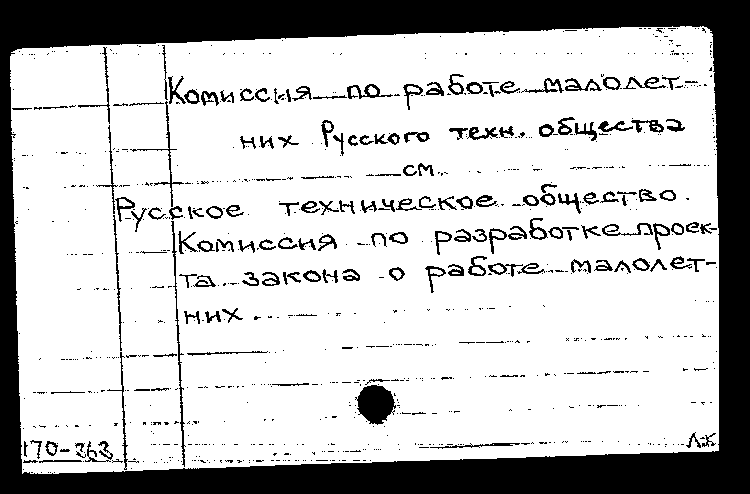 Комиссия по работе малолет-
них Русского техн. общества
см.
Русское техническое общество.
Комиссия по разработке проек-
та закона о работе малолет-
них.
170-363